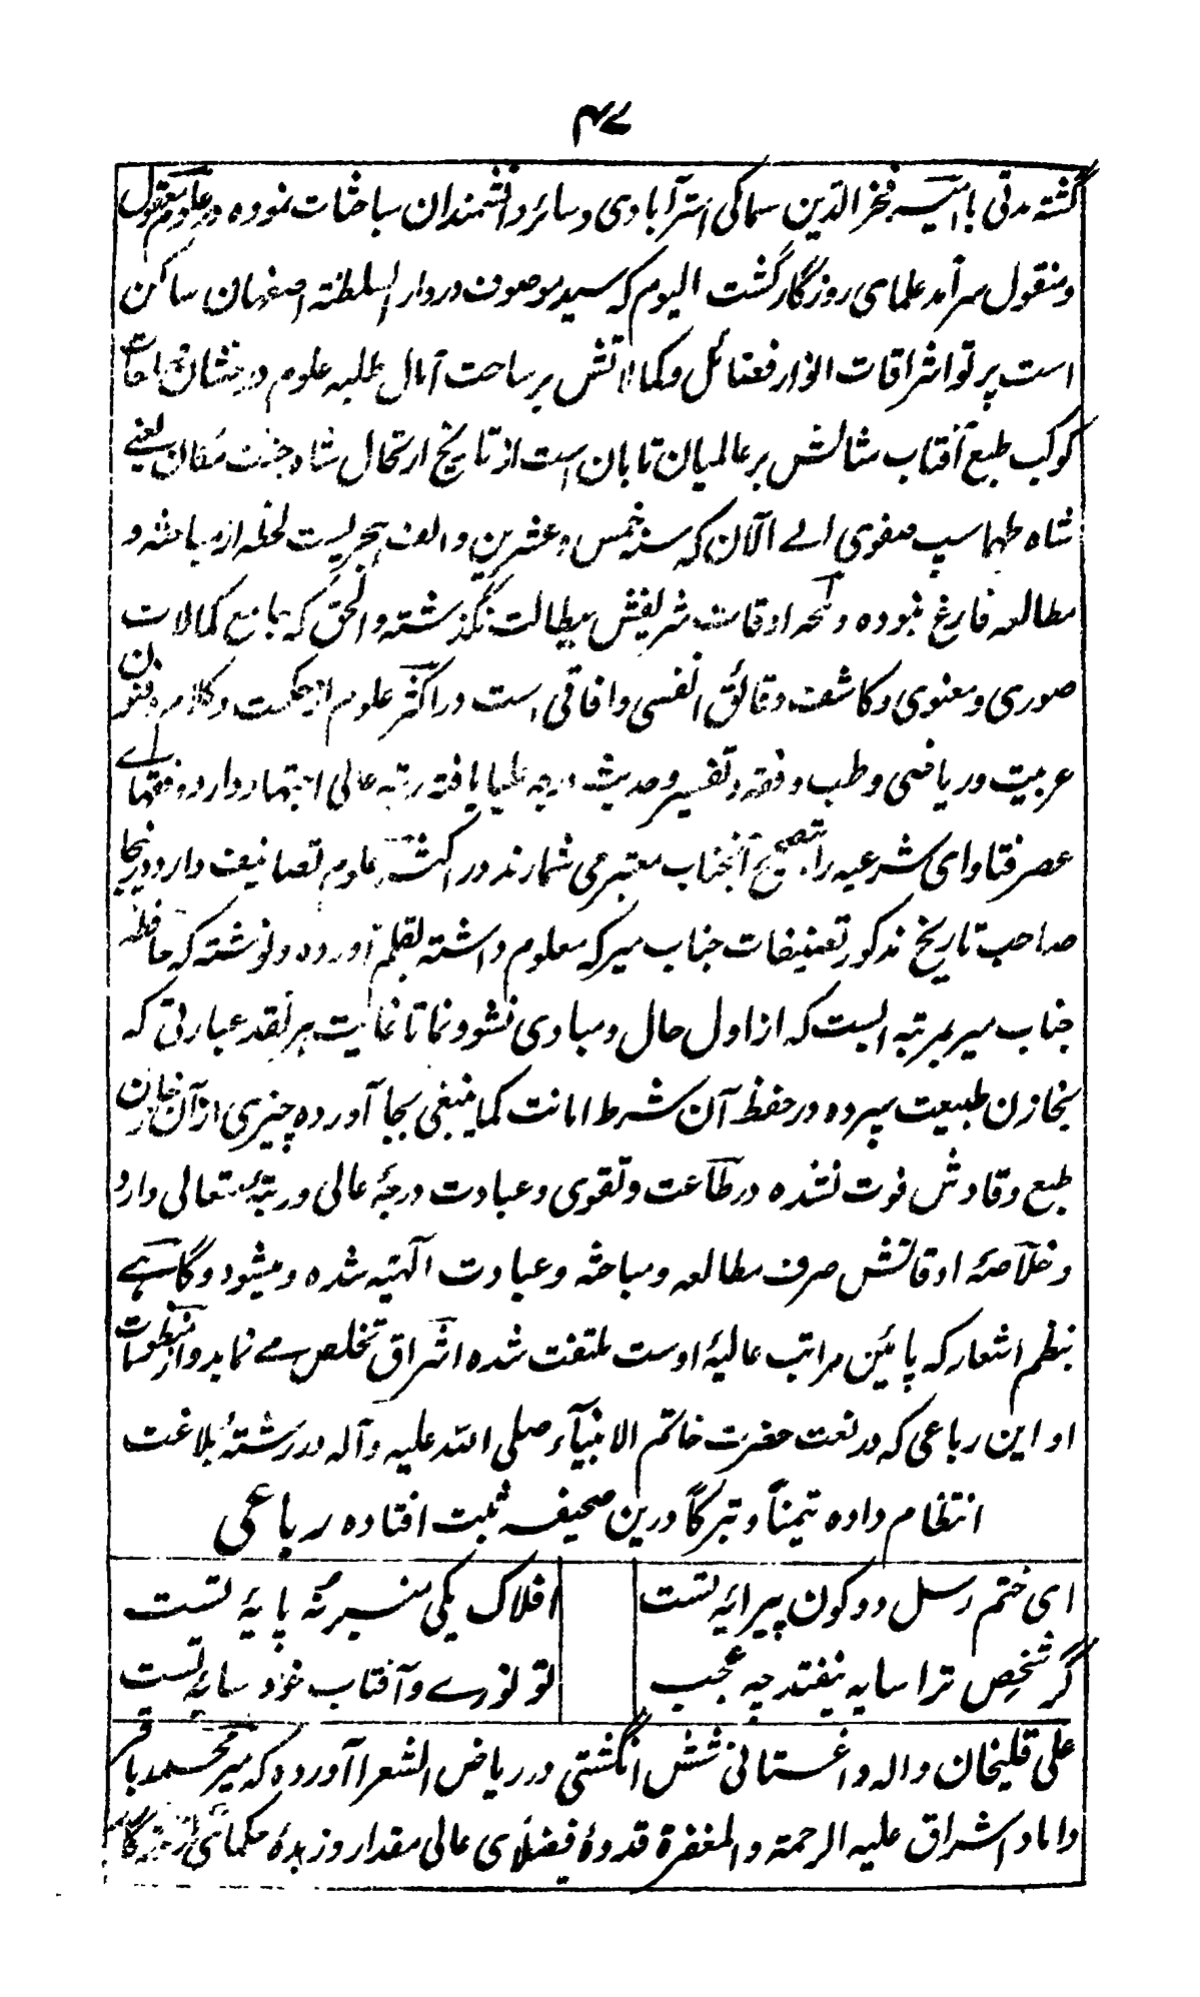 ۴۷
گشته مدتی با امیر فخرالدین سماکی استرآبادی و سائر دانشمندان مباحثات نموده در علوم معقول
و منقول سرآمد علمای روزگار گشت الیوم که سید موصوف در دار السلطنة اصفهان ساکن
است پرتو اشراقات انوار فضائل و کمالاتش بر ساحت آمال طلبه علوم درخشان
کوکب طبع آفتاب مثالش بر عالمیان تابان است از تاریخ ارتحال شاه جنت مکان یعنے
شاه طهماسپ صفوی الے الآن که سنه خمس و عشرین و الف هجریست لحظه از مباحثه و
مطالعه فارغ نبوده و لمحه اوقات شریفش ببطالت نگذشته و الحق که جامع کمالات
صوری و معنوی و کاشف دقائق انفسی و آفاقی است در اکثر علوم از حکمت و کلام و فنون
عربیت و ریاضی و طب و فقه و تفسیر و حدیث درجه علیا یافته رتبه عالی اجتهاد دارد و فقهاے
عصر فتاوای شرعیه را بتصحیح آنجناب معتبر می شمارند در اکثر علوم تصانیف دارد درینجا
صاحب تاریخ مذکور تصنیفات جناب میر که معلوم داشته بقلم آورده و نوشته که حافظه
جناب میر بمرتبه ایست که از اول حال و مبادی نشو و نما تا غایت هر نقد عبارتی که
بخازن طبیعت سپرده در حفظ آن شرط امانت کما ینبغی بجا آورده چیزی از آن خازن
طبع وقادش فوت نشده در طاعت و تقوی و عبادت درجهٔ عالی و رتبهٔ متعالی دارد
و خلاصهٔ اوقاتش صرف مطالعه و مباحثه و عبادت الٰهیه شده و میشود و گاہے
بنظم اشعار که پائین مراتب عالیهٔ اوست ملتفت شده اشراق تخلص مے نماید و از منظومات
او این رباعی که در نعت حضرت خاتم الانبیآء صلی الله علیه و آله در رشتهٔ بلاغت
انتظام داده تیمناً و تبرکاً درین صحیفه ثبت افتاده رباعی
ای ختم رسل دو کون پیرایهٔ تست افلاک یکی منبر نه پایهٔ تست
گر شخص ترا سایه نیفتد چه عجب تو نورے و آفتاب خود سایهٔ تست
علی قلیخان واله داغستانی شش انگشتی در ریاض الشعرا آورده که میر محمد باقر
داماد اشراق علیه الرحمة و المغفرة قدوهٔ فضلای عالی مقدار و زبدهٔ حکمای